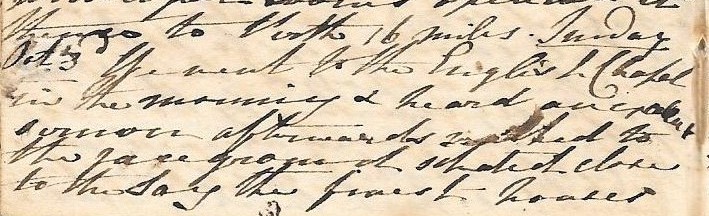 thence to Worth 16 miles. Sunday
Oct. 3 We went to the English Chapel
in the morning & heard an excellent
sermon afterwards walked to
the race ground situated close
to the the finest houses